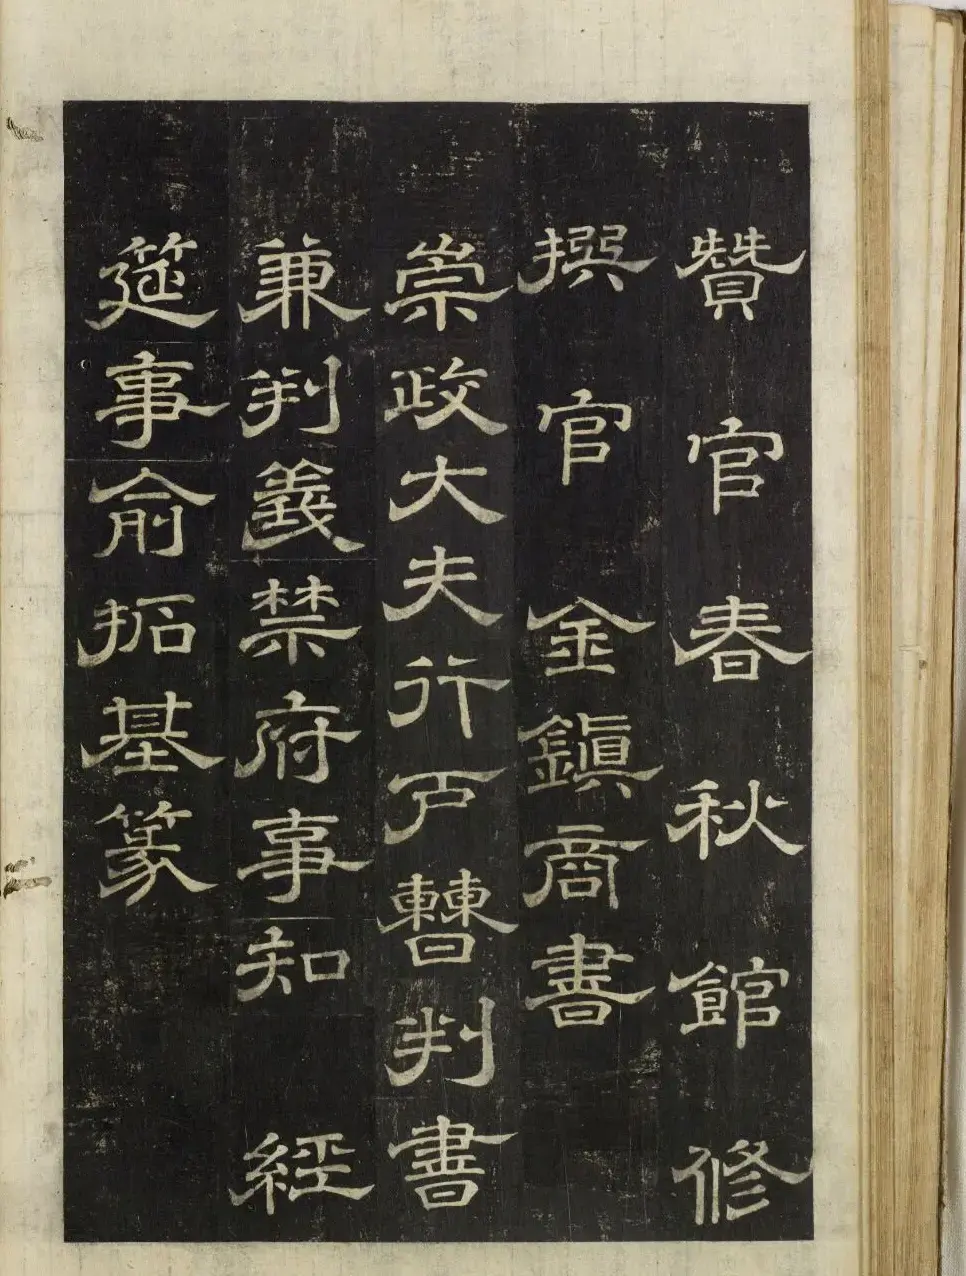 贊官春秋館修
撰官金鎭商書
崇政大夫行戶曹判書
兼判義禁府事知 經
筵事俞拓基篆